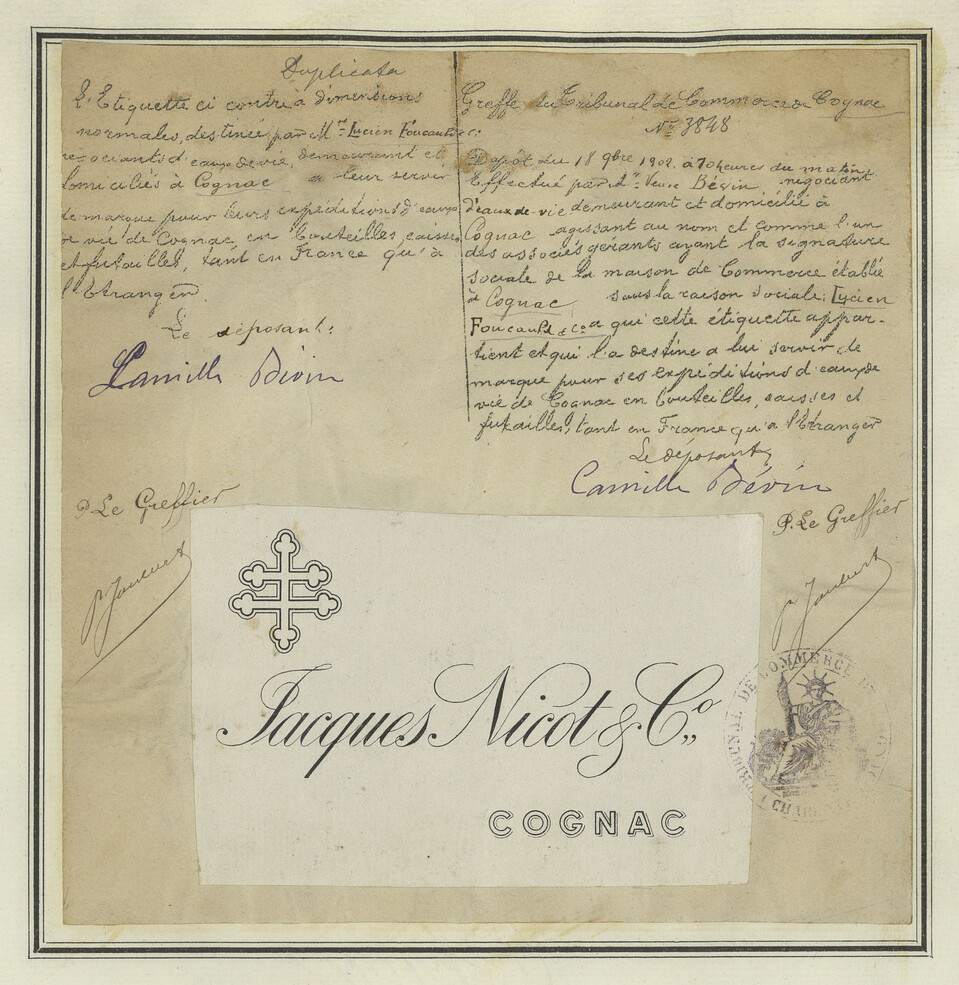 Duplicata
L'Etiquette ci contre à dimensions
normales, destinée par M.rs Lucien Foucauld & C.ie
négociants d'eaux de vie, demeurant et
domiciliés à Cognac a leur servir
de marque pour leurs expéditions d'eaux
de vie de Cognac, en bouteilles, caisses
et futailles, tant en France qu'à
l'Etranger.
Le déposant:
Camille Bévin
P. Le Greffier
Greffe du Tribunal de Commerce de Cognac
N° 3848
Dépôt du 18 9bre 1902. à 10 heures du matin
Effectué par M. Bévin, négociant
d'eaux de vie demeurant et domicilié à
Cognac agissant au nom et comme l'un
des associés gérants ayant la signature
sociale de la maison de Commerce établie
à Cognac sous la raison sociale: Lucien
Foucauld & Co a qui cette étiquette appar-
tient et qui l'a destine a lui servir de
marque pour ses expéditions d'eaux de
vie de Cognac en bouteilles, caisses et
futailles, tant en France qu'a l'Etranger
Le déposant,
Camille Bévin
P. Le Greffier
Jacques Nicot & Co,,
COGNAC
TRIBUNAL DE COMMERCE